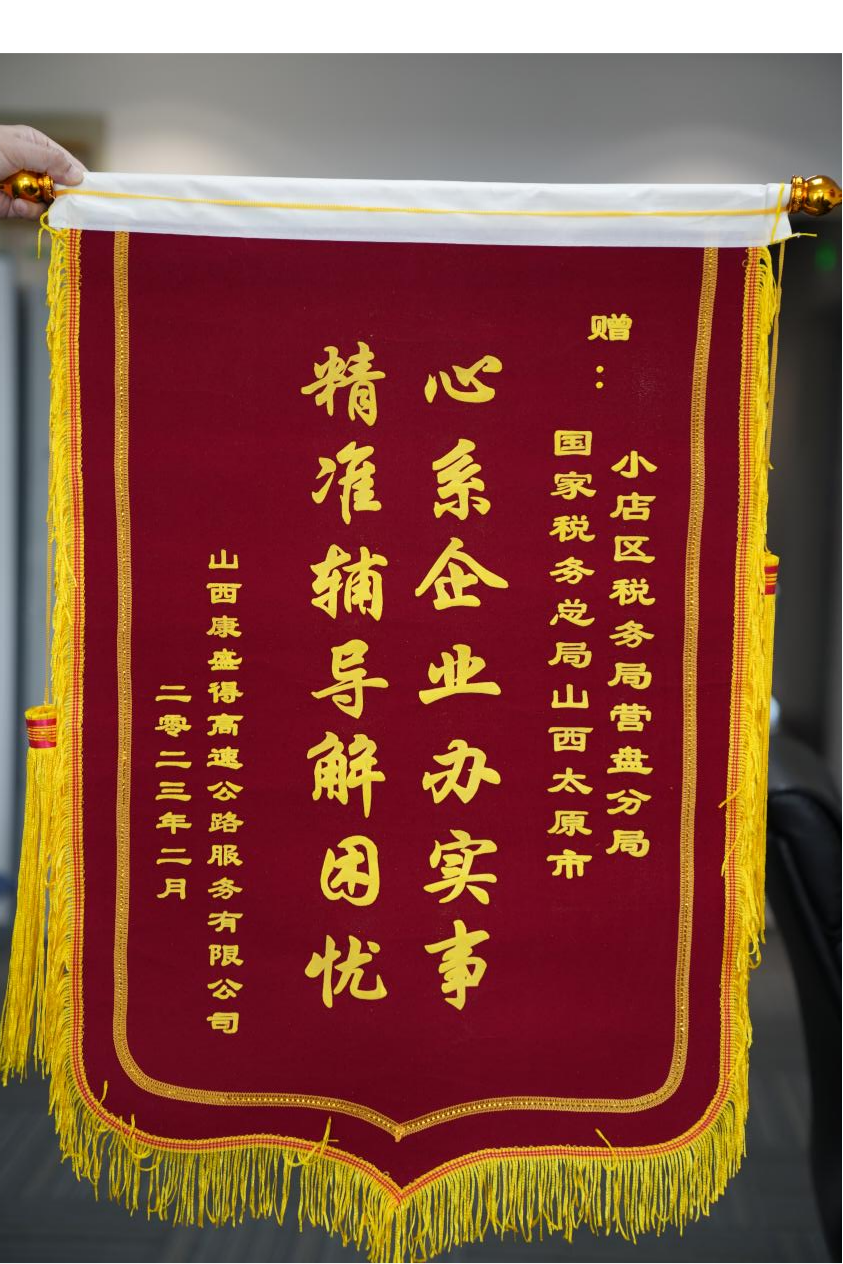 赠：
小店区税务局营盘分局
国家税务总局山西太原市
心系企业办实事
精准辅导解困忧
山西康盛得高速公路服务有限公司
二零二三年二月